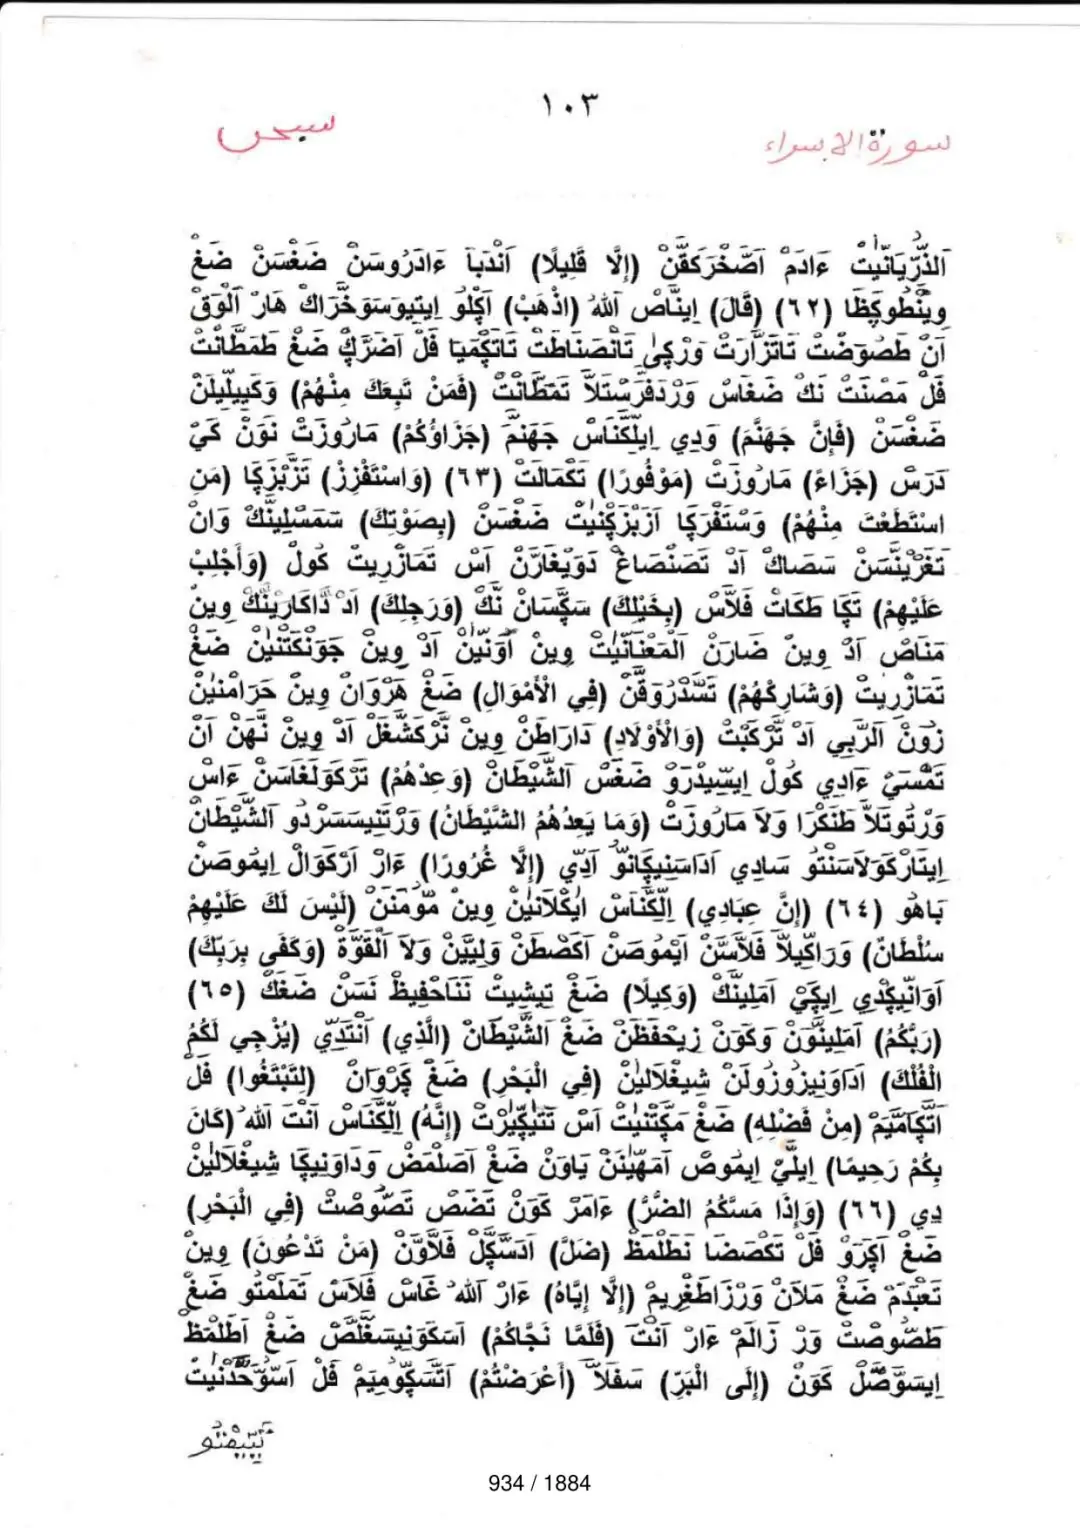 ١٠٣
سورة الاسراء
سبحن
اَلذُّرِّيَانِّيتْ ءَادَمْ اَصَّخْرَكَقَّنْ (إِلَّا قَلِيلًا) اَنْدَبَآ ءَادَرُوسَنْ ضَغْسَنْ ضَغْ
وِينْطُوكِظَا (٦٢) (قَالَ) اِينَّاصْ اَللهُ (اذْهَبْ) اَكْلُو اِيتِيوَسَوَخَّرَاكْ هَارْ اَلْوَقْ
اَنْ طَصُوَضْتْ تَاتَزَّارَتْ وَرْكِىٰ تَانْصَنَاطَتْ تَاتَكْمَيَا فَلْ اَضَرَكْ ضَغْ طَمَطَّانْتْ
فَلْ مَصْنَتْ نَكْ ضَغَاسْ وَرْدَفَرْسْتَلَّا تَمَطَانْتْ (فَمَنْ تَبِعَكَ مِنْهُمْ) وَكَيِيلِيلَنْ
ضَغْسَنْ (فَإِنَّ جَهَنَّمَ) وَدِي اِيلَكَنَاسْ جَهَنَّمَ (جَزَاؤُكُمْ) مَارُوزَتْ نَوَنْ كَيْ
دَرَسْ (جَزَاءً) مَارُوزَتْ (مَوْفُورًا) تَكْمَالَتْ (٦٣) (وَاسْتَفْزِزْ) تَزَّبْزَكَا (مَنِ
اسْتَطَعْتَ مِنْهُمْ) وَسْتَفْرَكَا اَزَبْزَكْنِيتْ ضَغْسَنْ (بِصَوْتِكَ) سَمَسْلِينَّكْ وَانْ
تَغَرْيِنَّسَنْ سَصَاكْ اَدْ تَصَنْصَاغْ دَوِيغَارَّنْ اَسْ تَمَازَّرِيتْ كُولْ (وَأَجْلِبْ
عَلَيْهِمْ) تَكَا طَكَاتْ فَلَّاسْ (بِخَيْلِكَ) سَكَّسَانْ نَّكْ (وَرَجِلِكَ) اَدْ دَّاكَارِيَنَّكْ وِينْ
مَنَاصْ اَدْ وِينْ ضَارَنْ اَلْمَعْنَانِّيتْ وِينْ اَوَنِّينْ اَدْ وِينْ جَوَنْكَتْنِينْ ضَغْ
تَمَازَّرِيتْ (وَشَارِكْهُمْ) تَسَّدْرُوقَّنْ (فِي الْأَمْوَالِ) ضَغْ هَرْوَانْ وِينْ حَرَامْنِينْ
زُونْ اَلرَّبِي اَدْ تَّرْكَبْتْ (وَالْأَوْلَادِ) دَارَاطَنْ وِينْ نَّرْكَشْغَلْ اَدْ وِينْ نَّهَنْ اَنْ
تَمَّسَيْ ءَادِي كُولْ اِيسِيدْرَوْ ضَغْسْ اَلشَّيْطَانْ (وَعِدْهُمْ) تَرْكَوْلَغَاسَنْ ءَاسْ
وَرْتُوتَلَّا طَنَكْرَا وَلَا مَارُوزَتْ (وَمَا يَعِدُهُمُ الشَّيْطَانُ) وَرْتَنِيسَسَرْدُو اَلشَّيْطَانْ
اِيتَارْكَوَلَاسَنْتُو سَادِي اَدَاسَنِيكَانُّو اَدِّي (إِلَّا غُرُورًا) ءَارْ اَرْكَوَالْ اِيمُوصَنْ
بَاهُو (٦٤) (إِنَّ عِبَادِي) اِلْكَنَاسْ اِيكْلَانِينْ وِينْ مُّؤْمَنَنْ (لَيْسَ لَكَ عَلَيْهِمْ
سُلْطَانٌ) وَرَاكِيلَّا فَلَّاسَّنْ اَيْمُوصَنْ اَكَصْطَنْ وَلِيَّيَنْ وَلَا اَلْقُوَّةْ (وَكَفَى بِرَبِّكَ)
اَوَانِيكْدِي اِيكَيْ اَمَلِينَّكْ (وَكِيلًا) ضَغْ تِيشِيتْ نَنَاحْفِيظْ نَسَنْ ضَغْكْ (٦٥)
(رَبُّكُمُ) اَمَلِينَّوَنْ وَكَوَنْ زِيحْفَظَنْ ضَغْ اَلشَّيْطَانْ (الَّذِي) اَنْتَدِّي (يُزْجِي لَكُمُ
الْفُلْكَ) اَدَاوَنِيزُوزُولَنْ شِيغْلَالِينْ (فِي الْبَحْرِ) ضَغْ كَرْوَانْ (لِتَبْتَغُوا) فَلْ
اَتَّكَامَّيَمْ (مِنْ فَضْلِهِ) ضَغْ مَكَتْنِيتْ اَسْ تَتَيْكِيرْتْ (إِنَّهُ) اِلْكَنَاسْ اَنْتْ اَللهُ (كَانَ
بِكُمْ رَحِيمًا) اِيلَّيْ اِيمُوصْ اَمَهَّيْنَنْ يَاوَنْ ضَغْ اَصَلْمَضْ وَدَاوَنِيكَا شِيغْلَالِينْ
دِي (٦٦) (وَإِذَا مَسَّكُمُ الضُّرُّ) ءَامَرْ كَوَنْ تَضَصْ تَصُّوصْتْ (فِي الْبَحْرِ)
ضَغْ اَكَرَوْ فَلْ تَكْصَضَا نَطَلْمَظْ (ضَلَّ) اَدَسَّكَّلْ فَلَّاوَنْ (مَنْ تَدْعُونَ) وِينْ
تَعْبَدَمْ ضَغْ مَلَانْ وَرْزَاطَغْرِيمْ (إِلَّا إِيَّاهُ) ءَارْ اَللهْ غَاسْ فَلَاسْ تَمَلَمْتُو ضَغْ
طَصُّوصْتْ وَرْ زَالَمْ ءَارْ اَنْتْ (فَلَمَّا نَجَّاكُمْ) اَسَكَوَنِيسَغْلَصْ ضَغْ اَطَلْمَظْ
اِيسَوَّصَّلْ كَوَنْ (إِلَى الْبَرِّ) سَفَلَّا (أَعْرَضْتُمْ) اَتَّسَكُّومِيَمْ فَلْ اَسَوَّحَّدْنِيتْ
934 / 1884